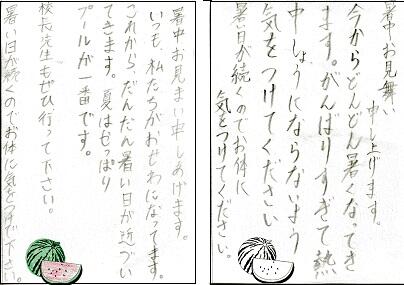 暑中お見まい申しあげます。
いつも、私たちがおせわになってます。
これからだんだん暑い日が近づい
てきます。夏はやっぱり
プールが一番です。
校長先生もぜひ行って下さい。
暑い日が続くのでお体に気をつけて下さい。
暑中お見舞い
申し上げます。
今からどんどん暑くなってき
ます。がんばりすぎて熱
中しょうにならないよう
気をつけてください
暑い日が続くのでお体に
気をつけてください。